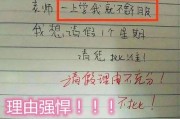 老师一上学我就不舒服
我想请假1个星期
请您批准!
请假理由不充分!
不批!
理由强悍!!!